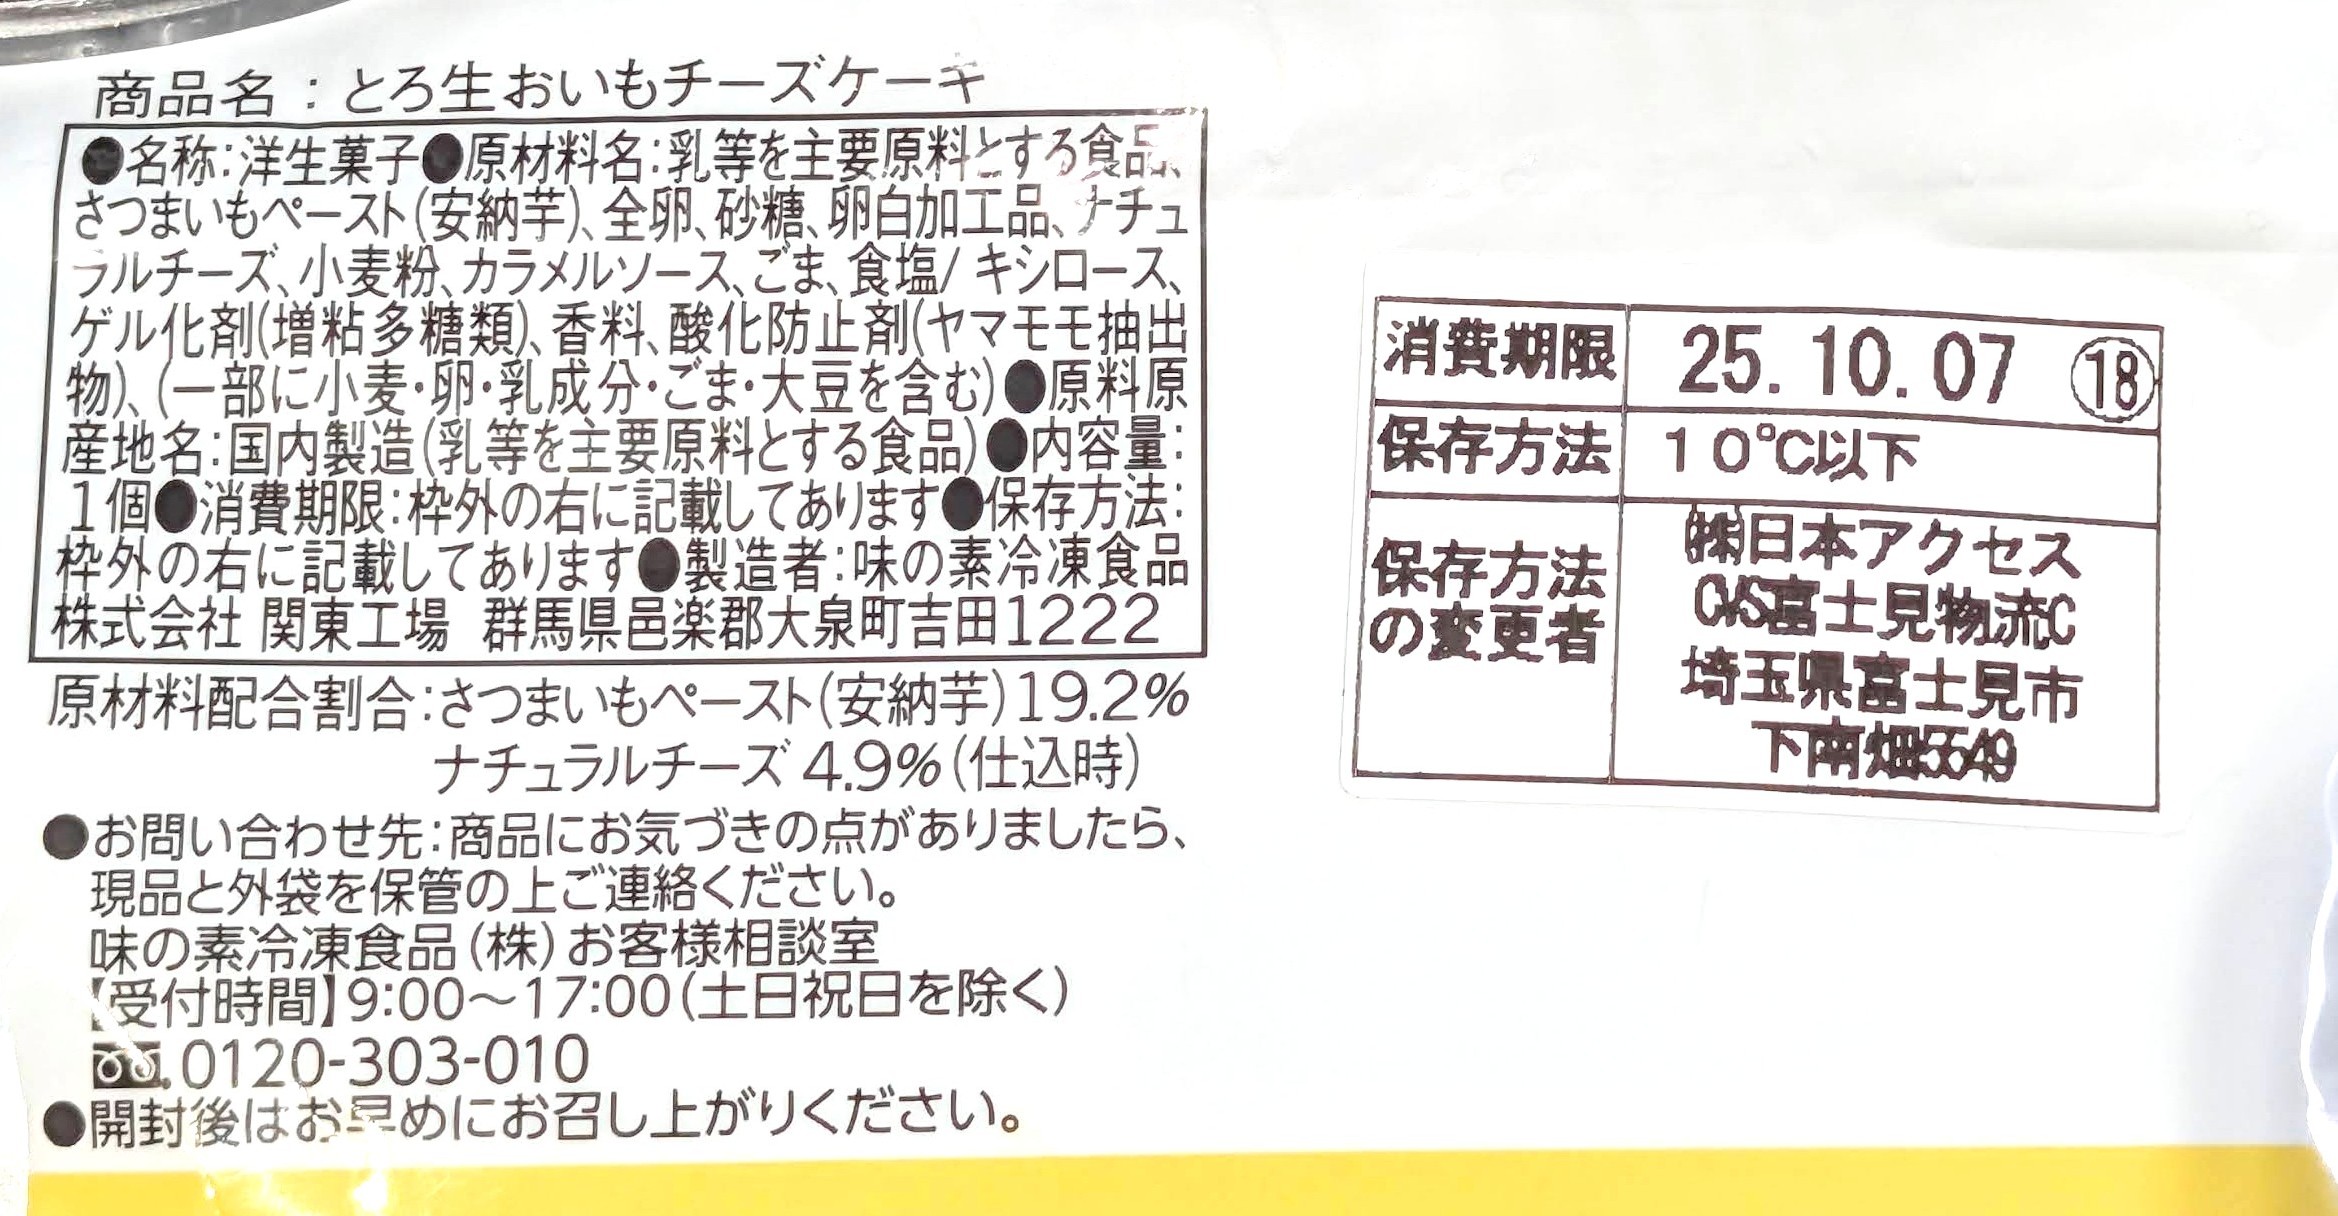 商品名：とろ生おいもチーズケーキ
●名称：洋生菓子●原材料名：乳等を主要原料とする食品、
さつまいもペースト（安納芋）、全卵、砂糖、卵白加工品、ナチュ
ラルチーズ、小麦粉、カラメルソース、ごま、食塩/キシロース、
ゲル化剤（増粘多糖類）、香料、酸化防止剤（ヤマモモ抽出
物）、（一部に小麦・卵・乳成分・ごま・大豆を含む）●原料原
産地名：国内製造（乳等を主要原料とする食品）●内容量：
1個●消費期限：枠外の右に記載してあります●保存方法：
枠外の右に記載してあります●製造者：味の素冷凍食品
株式会社 関東工場 群馬県邑楽郡大泉町吉田1222
原材料配合割合：さつまいもペースト（安納芋）19.2%
ナチュラルチーズ 4.9%（仕込時）
●お問い合わせ先：商品にお気づきの点がありましたら、
現品と外袋を保管の上ご連絡ください。
味の素冷凍食品（株）お客様相談室
【受付時間】9:00～17:00（土日祝日を除く）
0120-303-010
●開封後はお早めにお召し上がりください。
消費期限 25.10.07 ⑱
保存方法 10℃以下
保存方法
の変更者
㈱日本アクセス
CVS富士見物流C
埼玉県富士見市
下南畑5549